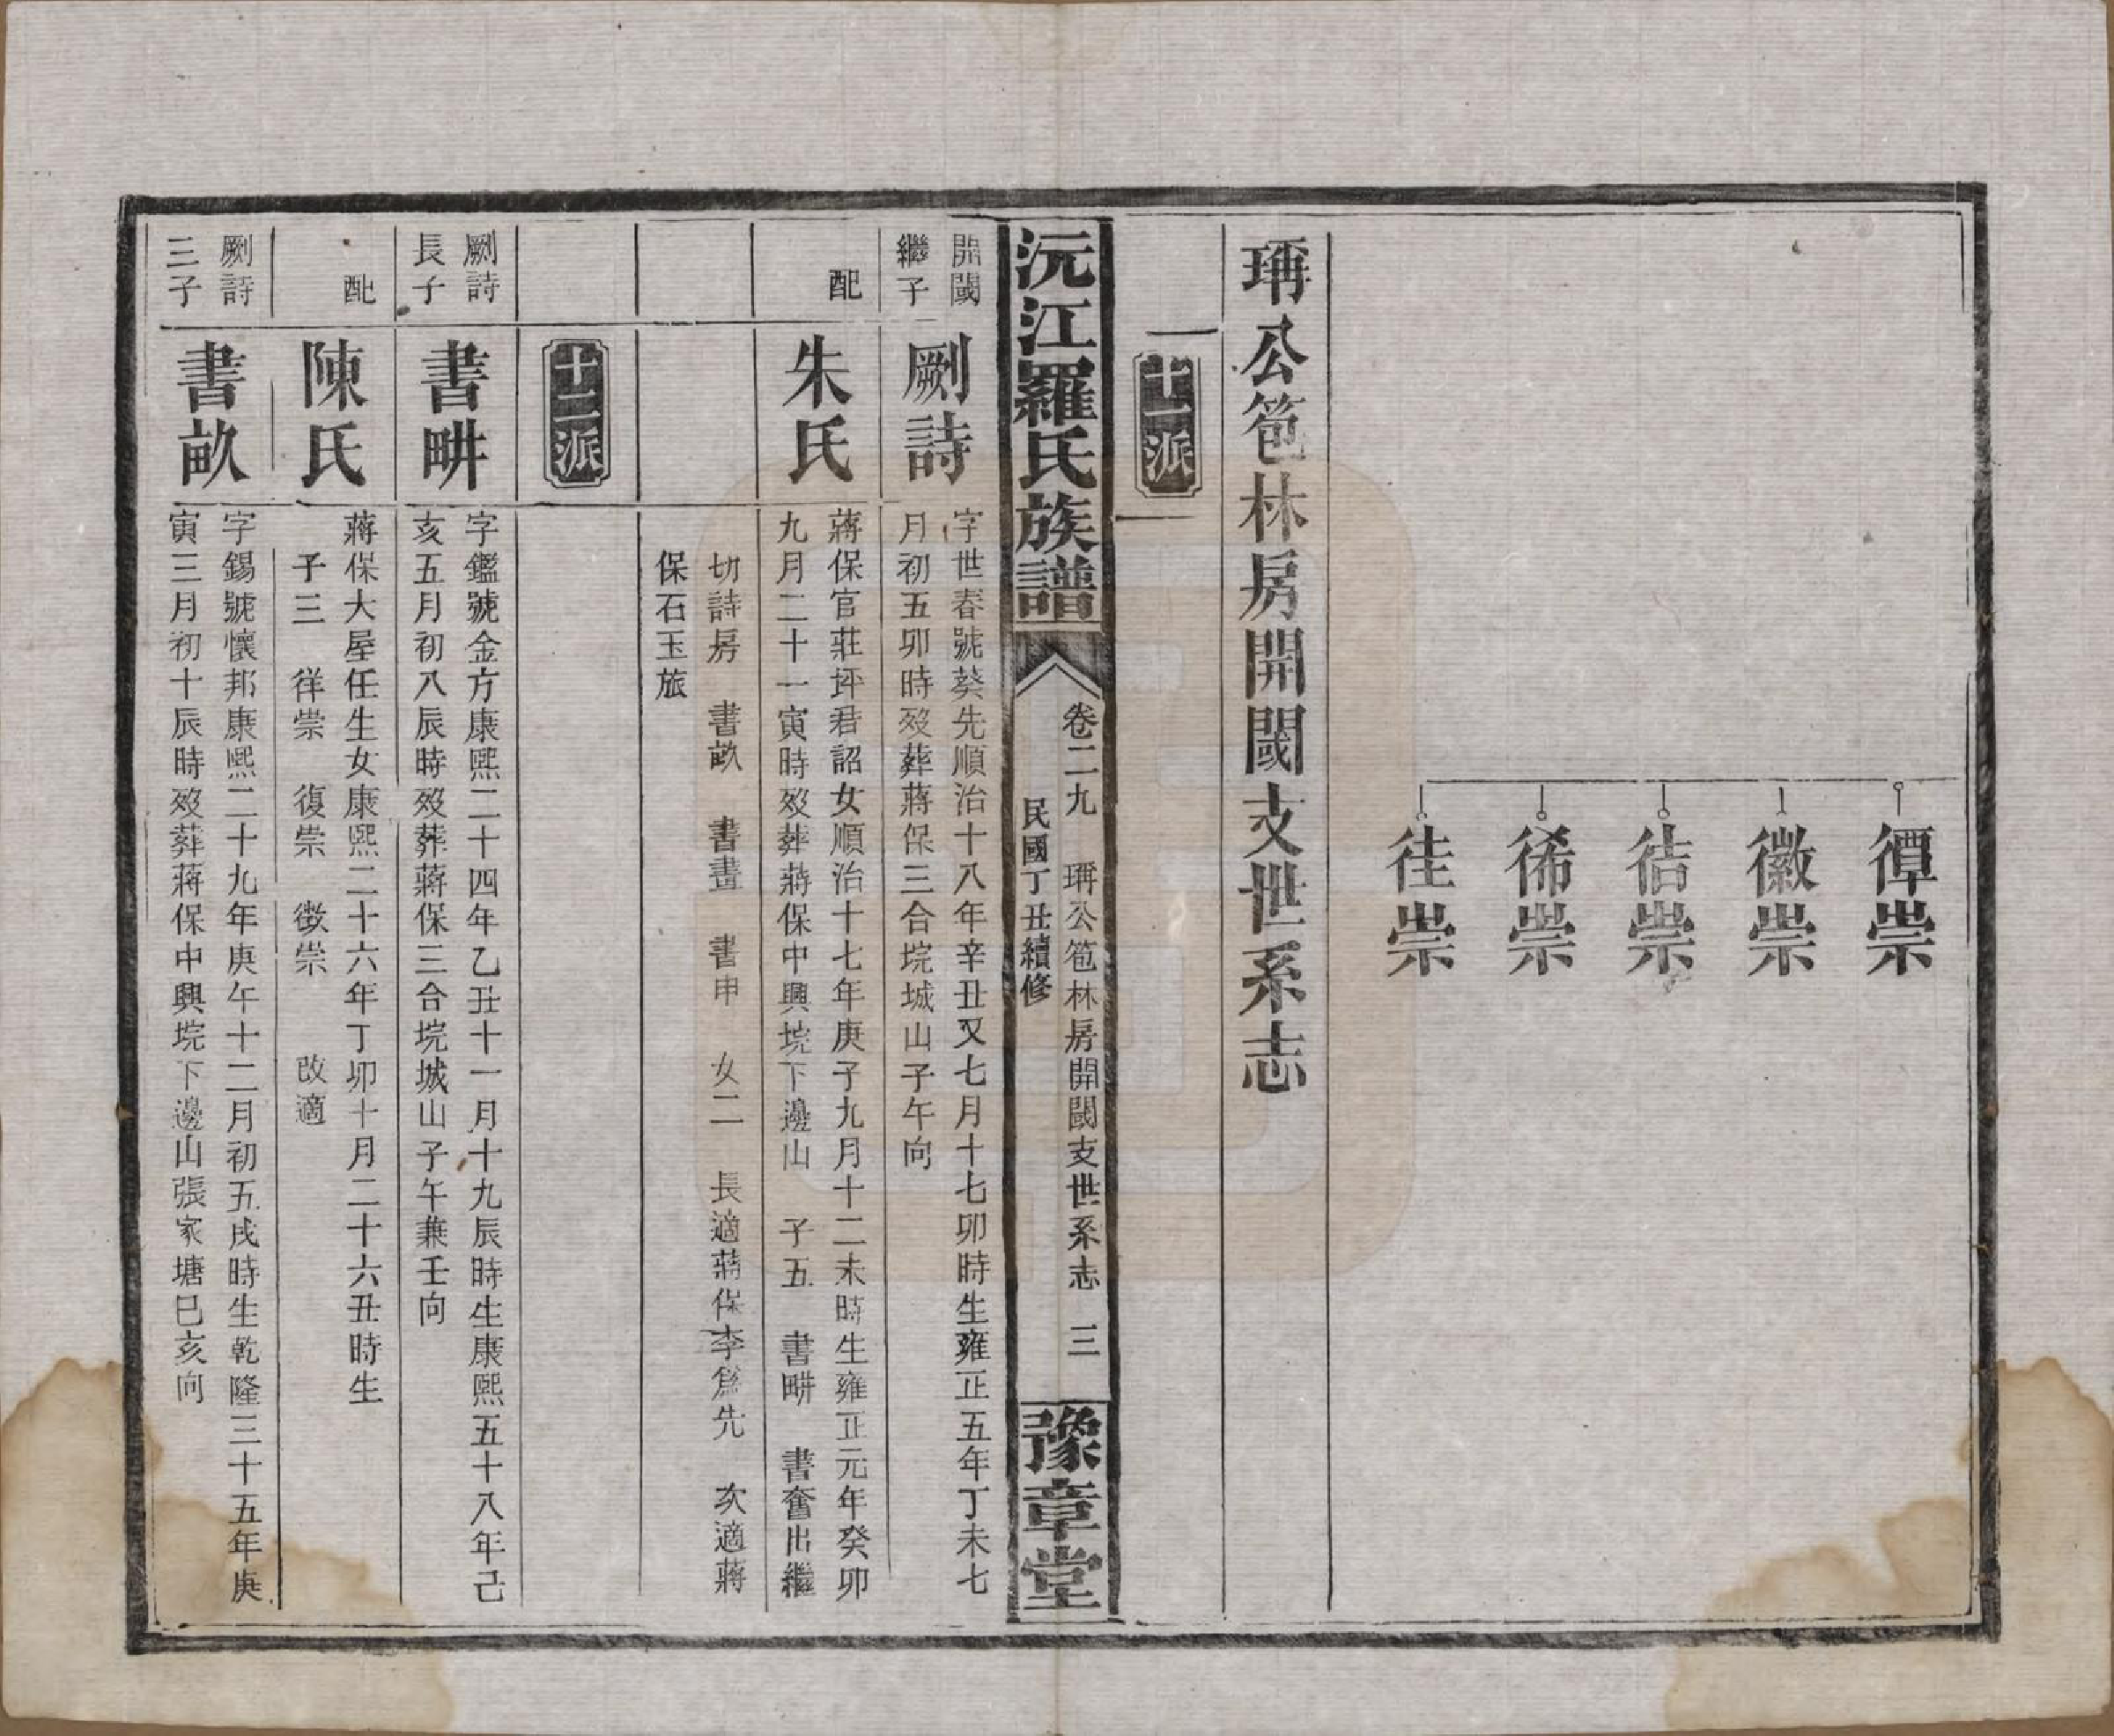 禫崇
徽崇
祮崇
徥崇
徍崇
瑀公笣林房開閾支世系志
十一派
沅江羅氏族譜
卷二九　瑀公笣林房開閾支世系志　三
民國丁丑續修
豫章堂
開閾
繼子
劂詩
字世春號葵先順治十八年辛丑又七月十七卯時生雍正五年丁未七
月初五卯時歿葬蔣保三合垸城山子午向
配
朱氏
蔣保官莊坪君詔女順治十七年庚子九月十二未時生雍正元年癸卯
九月二十一寅時歿葬蔣保中興垸下邊山　子五　書畊　書奮出繼
切詩房　書畝　書畫　書申　女二　長適蔣保李爲先　次適蔣
保石玉旅
十二派
劂詩
長子
書畊
字鑑號金方康熙二十四年乙丑十一月十九辰時生康熙五十八年己
亥五月初八辰時歿葬蔣保三合垸城山子午兼壬向
配
陳氏
蔣保大屋任生女康熙二十六年丁卯十月二十六丑時生
子三　徉崇　復崇　徴崇　改適
劂詩
三子
書畝
字錫號懷邦康熙二十九年庚午十二月初五戌時生乾隆三十五年庚
寅三月初十辰時歿葬蔣保中興垸下邊山張家塘巳亥向